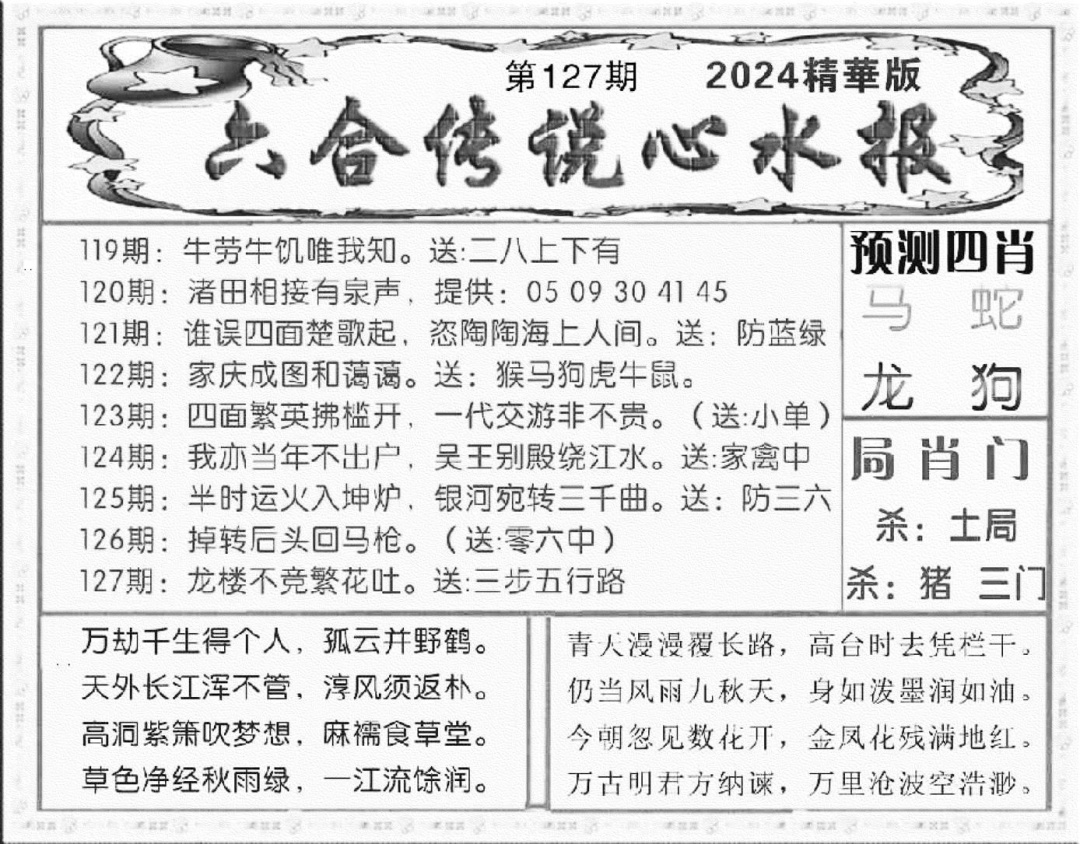 第127期 2024精華版
六合传说心水报
119期：牛劳牛饥唯我知。送:二八上下有
120期：渚田相接有泉声，提供：05 09 30 41 45
121期：谁误四面楚歌起，恣陶陶海上人间。送：防蓝绿
122期：家庆成图和蔼蔼。送：猴马狗虎牛鼠。
123期：四面繁英拂槛开，一代交游非不贵。（送:小单）
124期：我亦当年不出户，吴王别殿绕江水。送:家禽中
125期：半时运火入坤炉，银河宛转三千曲。送：防三六
126期：掉转后头回马枪。（送:零六中）
127期：龙楼不竞繁花吐。送:三步五行路
预测四肖
马 蛇
龙 狗
局肖门
杀：土局
杀：猪 三门
万劫千生得个人，孤云并野鹤。
天外长江浑不管，淳风须返朴。
高洞紫箫吹梦想，麻襦食草堂。
草色净经秋雨绿，一江流馀润。
青天漫漫覆长路，高台时去凭栏干。
仍当风雨九秋天，身如泼墨润如油。
今朝忽见数花开，金凤花残满地红。
万古明君方纳谏，万里沧波空浩渺。